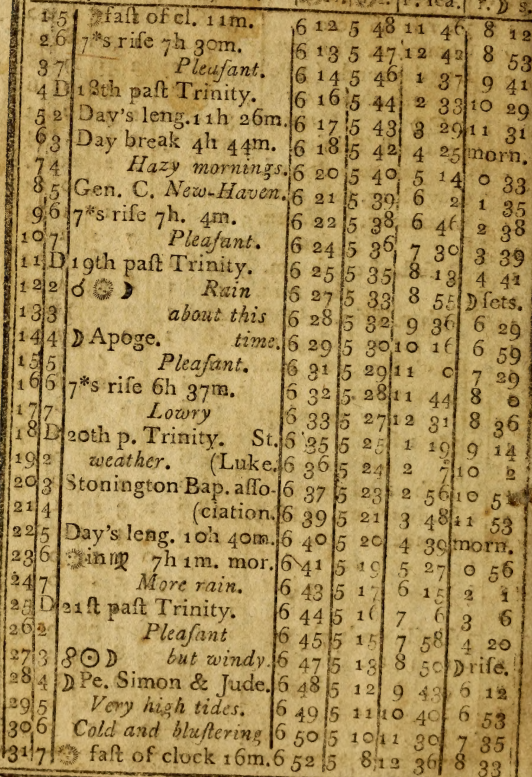 1 5 fast of cl. 11m. 6 12 5 48 11 46 8 12
2 6 7*s rise 7h 30m. 6 13 5 47 12 42 8 53
3 7 Pleasant. 6 14 5 46 1 37 9 41
4 D 18th past Trinity. 6 16 5 44 2 33 10 29
5 2 Day's leng. 11h 26m. 6 17 5 43 3 29 11 31
6 3 Day break 4h 44m. 6 18 5 42 4 25 morn.
7 4 Hazy mornings. 6 20 5 40 5 14 0 33
8 5 Gen. C. New-Haven. 6 21 5 39 6 2 1 35
9 6 7*s rise 7h. 4m. 6 22 5 38 6 46 2 38
10 7 Pleasant. 6 24 5 36 7 30 3 39
11 D 19th past Trinity. 6 25 5 35 8 13 4 41
12 2 ☌ ☉ ☽ Rain 6 27 5 33 8 55 ☽ sets.
13 3 about this 6 28 5 32 9 36 6 29
14 4 ☽ Apoge. time. 6 29 5 30 10 16 6 59
15 5 Pleasant. 6 31 5 29 11 0 7 29
16 6 7*s rise 6h 37m. 6 32 5 28 11 44 8 0
17 7 Lowry 6 33 5 27 12 31 8 36
18 D 20th p. Trinity. St. 6 35 5 25 1 19 9 14
19 2 weather. (Luke. 6 36 5 24 2 7 10 2
20 3 Stonington Bap. asso- 6 37 5 23 2 56 10 5
21 4 (ciation. 6 39 5 21 3 48 11 53
22 5 Day's leng. 10h 40m. 6 40 5 20 4 39 morn.
23 6 ☉ in ♏ 7h 1m. mor. 6 41 5 19 5 27 0 56
24 7 More rain. 6 43 5 17 6 15 2 1
25 D 21st past Trinity. 6 44 5 16 7 6 3 6
26 2 Pleasant 6 45 5 15 7 58 4 20
27 3 ☍ ☉ ☽ but windy. 6 47 5 13 8 50 ☽ rise.
28 4 ☽ Pe. Simon & Jude. 6 48 5 12 9 43 6 12
29 5 Very high tides. 6 49 5 11 10 40 6 53
30 6 Cold and blustering 6 50 5 10 11 30 7 35
31 7 ☉ fast of clock 16m. 6 52 5 8 12 36 8 33